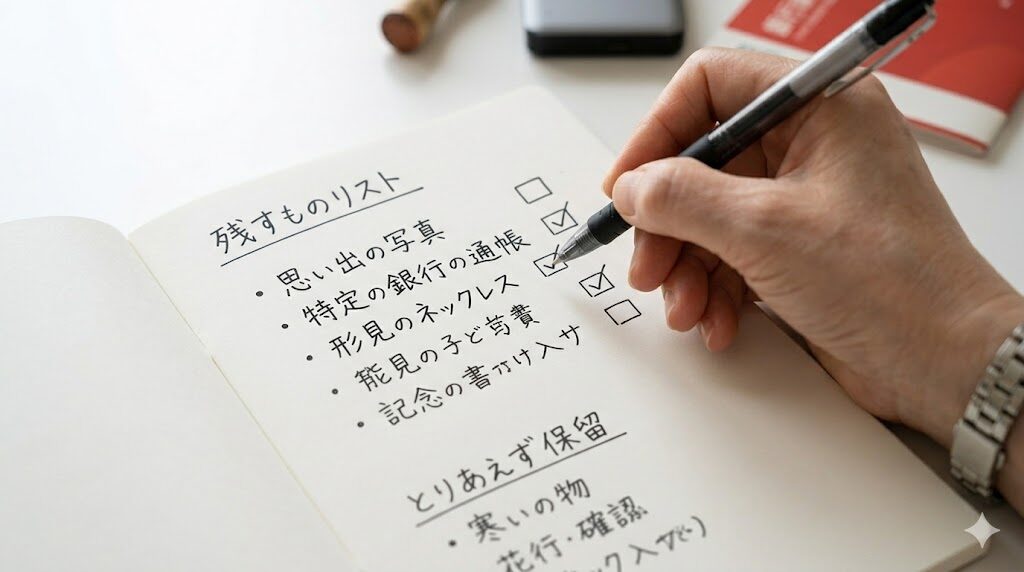 残すものリスト
・思い出の写真
・特定の銀行の通帳
・形見のネックレス
・能見の子ど
・記念の書
とりあえず保留
・寒いの物
花行・確認
ック入